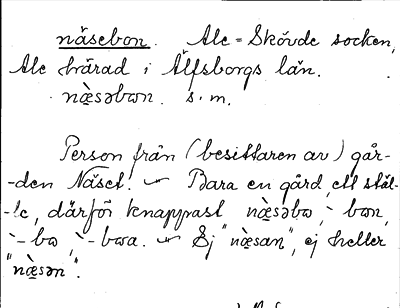 näsebon. Ale-Skövde socken,
Ale härad i Älfsborgs län.
næ̀sǝbωn. s. m.
Person från (besittaren av) går-
-den Näset. ~ Bara en gård, ett ställ-
-le, därför knappast næ̀sǝbω, `- bωn,
`- bω, `- bωa. ~ Ej "næ̀san", ej heller
"næ̀sǝn".